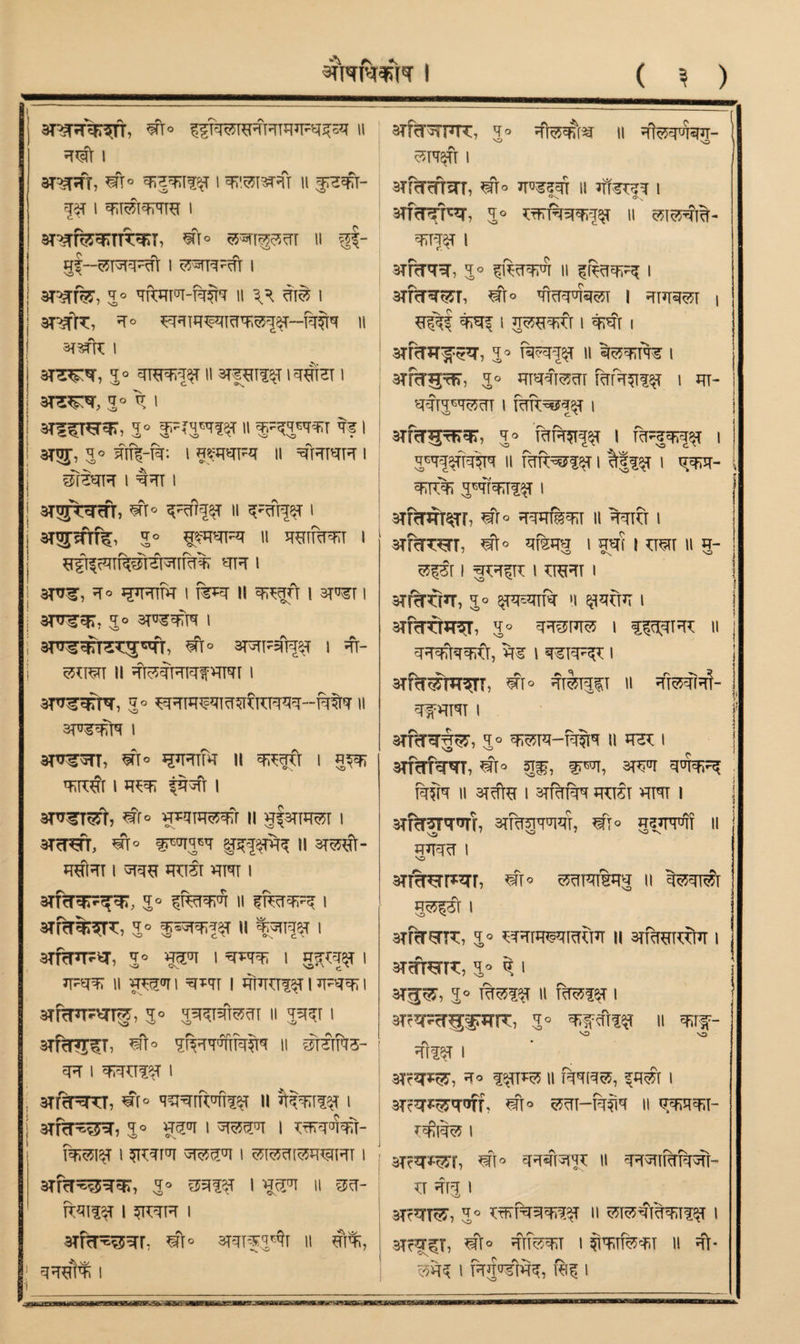 औषधिकोष । ( ३ )
अञ्जनकेशी, स्त्री० हट्टविलासिनीनामगन्धद्रव्य ॥
नखी ।
अञ्जनी, स्त्री० कटुकावृक्ष । कालाञ्जनी ॥ कुटकी-
वृक्ष । कालीकपास ।
अञ्जलिकारिका, स्त्री० लज्जालुलता ॥ छुई-
मुई--लाजवन्ती । लजावन्ती ।
अञ्जलि, पु० परिमाण-विशेष ॥ ३२ तोले ।
अञ्जीर, न० स्वनामख्यातफलवृक्ष--विशेष ॥
अञ्जीर ।
अटरूष, पु० वासकवृक्ष ॥ अडूसावृक्ष । वसोंटा ।
अटरूष, पु० ऐ ।
अट्टहासक, पु० कुन्दपुष्पवृक्ष ॥ कुन्दपुष्पका पेड ।
अणु, पु० व्रीहि-वि: । सूक्ष्मधान्य ॥ चीनाधान ।
छोटेधान । चेना ।
अणुरेवती, स्त्री० दन्तीवृक्ष ॥ दन्तीवृक्ष ।
अणुव्रीहि, पु० सूक्ष्मधान्य ॥ प्रसातिका ।
अण्ड, न० मृगनाभि । डिम्ब ॥ कस्तूरी । अण्डा ।
अण्डक, पु० अण्डकोष ।
अण्डकोटरपुष्पी, स्त्री० अजान्त्रीवृक्ष । नी-
लराम्रा ॥ नीलवोनाइभाषा ।
अण्डकोष, पु० स्वनामख्यातशरीरावयव--विशेष ॥
अण्डकोष ।
अण्डजा, स्त्री० मृगनाभि ॥ कस्तूरी । मुश्क
अण्डाली, स्त्री० भूम्यामलकी ॥ भूईआमला ।
अतिकन्दक, पु० हस्तिकर्ण ॥ हस्तिकन्द ।
अतिकेशर, पु० कुब्जकवृक्ष ॥ कूजावृक्ष ।
अतिगन्ध, पु० भूतृण । चम्पक । मुद्गरवृक्ष ।
गन्धक ॥
अतिगन्धालु, पु० पुत्रदात्रीलता ॥ पुत्रदा ।
अतिगुहा, स्त्री० पृश्निपर्णीविशेष ॥
अतिचरा, स्त्री० पद्मचारिणीवृक्ष ॥ गेंदेकावृक्ष ।
अतिच्छत्र, पु० भूतृण । जलतृण ।
अतिच्छत्रक, पु० छत्रावृक्ष । भूतृण ॥
शरवान ।
अतिच्छत्रा, स्त्री० अवाक्पुष्पी ॥ सौंफ,
वनसौंफ ।
अतिजागर, पु० नीलक्रौञ्च ॥ नीलवर्णबगु-
लापक्षी ।
अतितीव्रा, स्त्री० गण्डदूर्वा ॥ गाँडरदूब ।
अतिदीप्य, पु० रक्तचित्रकवृक्ष ॥ लालचीते-
कावृक्ष ।
अतिपत्र, पु० हस्तिकर्ण ॥ हस्तिकन्द ।
अतिबला, स्त्री० पीतवर्णबला । नागबला ।
सहदेई कङ्घई । गुलसकरी । कंघी ।
अतिमङ्गल्य, पु० बिल्ववृक्ष ॥ बेलकापेड ।
अतिमुक्त, पु० माधवीलता तिनिशवृक्ष । मा-
धवीपुष्पलता । तिरिच्छवृक्ष ।
अतिमुक्तक, पु० तिनिशवृक्ष । तिन्दुकवृक्ष ।
पुष्पवृक्षविशेष ॥ तिरिच्छवृक्ष । तेंदूवृक्ष । एकप्र-
कारके पुष्पकावृक्ष ।
अतिमोदा, स्त्री० नवमल्लिका ॥ नेवारी ।
अतिरसा, स्त्री० यष्टिमधु । मूर्वा । रास्ना ॥ मु-
लहठी । चूरनहार । रायसन ।
अतिरोग, पु० क्षयव्याधि ॥ क्षयरोग ।
अतिरोमश, पु० वनछाग । बृहद्वानर ॥
वनकीबकरी, भेड । बडाबन्दर ।
अतिलोमशा, स्त्री० नीलबुह्ना ॥
अतिवर्तुल, पु० कलाय-विशेष ॥ मटर ।
अतिविषा, स्त्री० शुक्ल, कृष्ण, अरुण वर्णकन्द
विशेष ॥ अतीस । अतिविष मराठी भाषा ।
अतिशुपर्णा, अतिशुपर्णी, स्त्री० मुद्गपर्णी ॥
मुगवन ।
अतिसाम्या, स्त्री० लतायष्टिमधु ॥ बेलवाली
मुलहठी ।
अतिसार, पु० स्वनामख्यातरोग ॥ अतिसाररोग ।
अतीसार, पु० ऐ ।
अतुल, पु० तिलवृक्ष ॥ तिलवृक्ष ।
अत्यन्तसुकुमार, पु० कङ्गुनीवृक्ष ॥ काङ्गु-
नीवृक्ष ।
अत्यम्ल, न० वृक्षाम्ल ॥ विषांबिल, इमली ।
अत्यम्लपर्णी, स्त्री० लता-विशेष ॥
अत्यम्ला, स्त्री० वनबीजपूर ॥
अत्याल, पु० रक्तचित्रकवृक्ष ॥ लालचीताकावृक्ष ।
अत्यूहा, स्त्री० नीलिका । शेफालिका ॥ नी-
लपेड । निर्गुण्डीभेद,